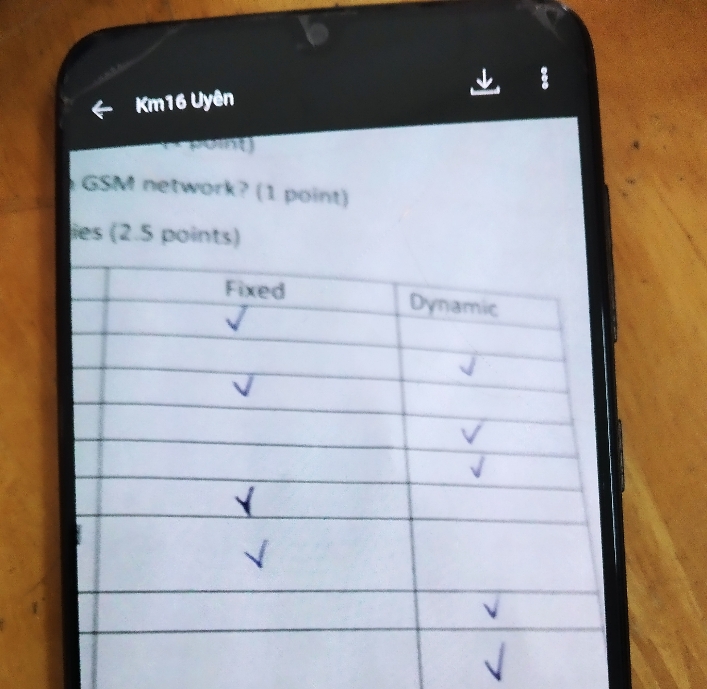 Km16 Uyên
point)
GSM network? (1 point)
ies (2.5 points)
Fixed Dynamic